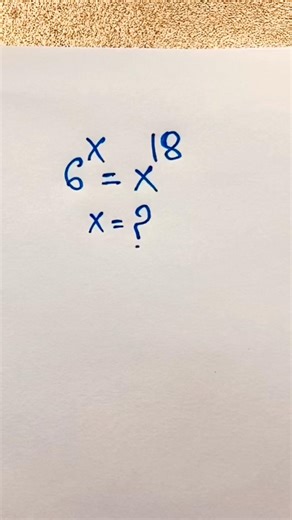 6^x = x^18
x = ?